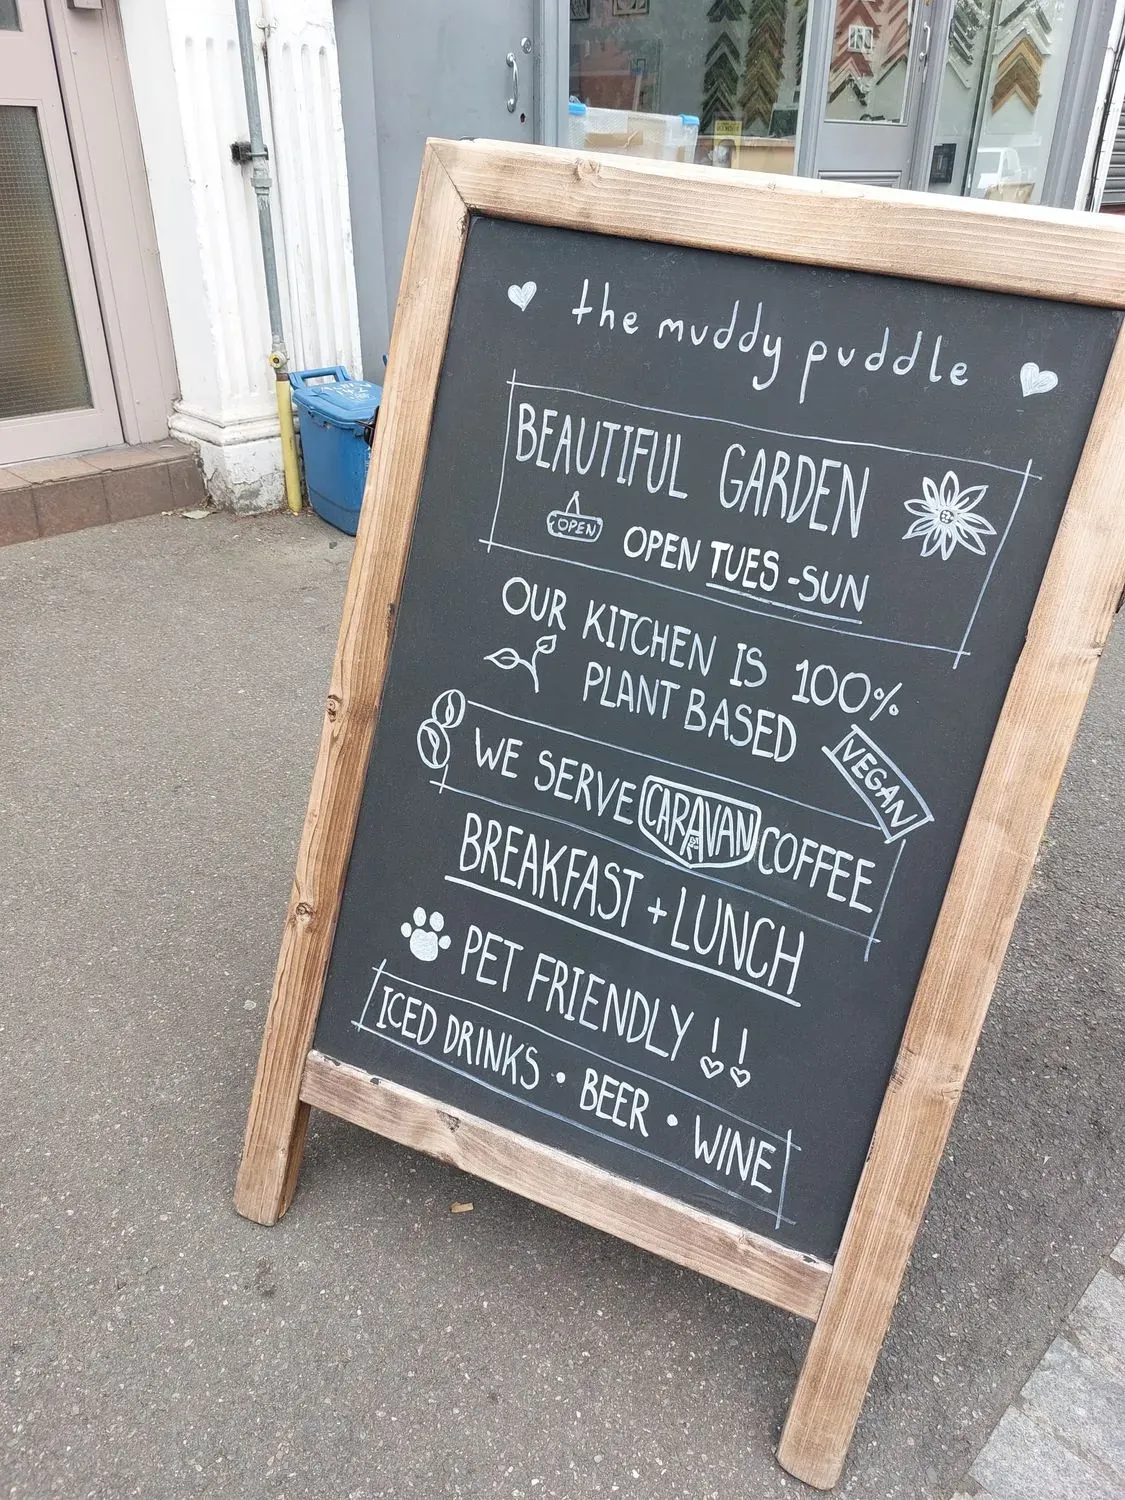 the muddy puddle
BEAUTIFUL GARDEN
OPEN
OPEN TUES-SUN
OUR KITCHEN IS 100%
PLANT BASED
VEGAN
WE SERVE CARAVAN COFFEE
BREAKFAST + LUNCH
PET FRIENDLY !!
ICED DRINKS • BEER • WINE